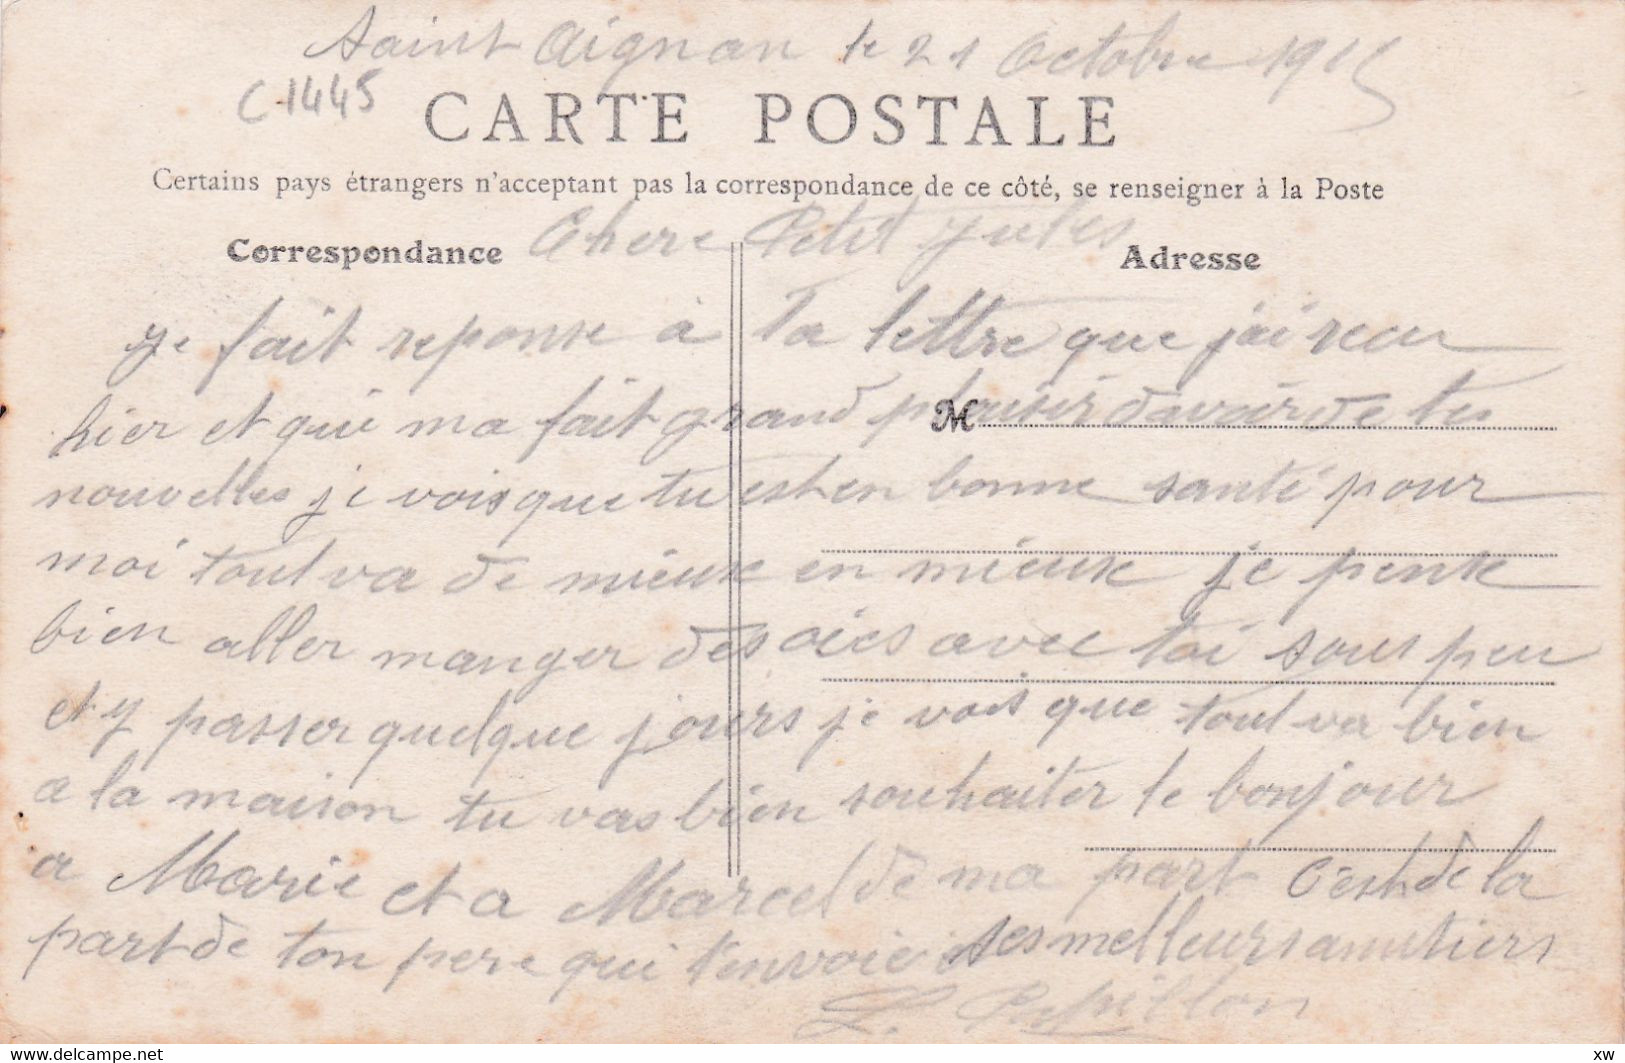 Saint Aignan le 21 Octobre 1915
C1445
CARTE POSTALE
Certains pays étrangers n'acceptant pas la correspondance de ce côté, se renseigner à la Poste
Chere Petit Jules
Correspondance
Adresse
je fait reponse à ta lettre que j'ai recu
M
hier et qui ma fait grand plaisir davoir de tes
nouvelles je vois que tu est en bonne santé pour
moi tout va de mieux en mieux je pense
bien aller manger des oies avec toi sous peu
et y passer quelque jours je vois que tout va bien
a la maison tu vas bien souhaiter le bonjour
a Marie et a Marcel de ma part C'est de la
part de ton pere qui t'envoie ses meilleurs amitiers
L. Papillon
www.delcampe.net
xw